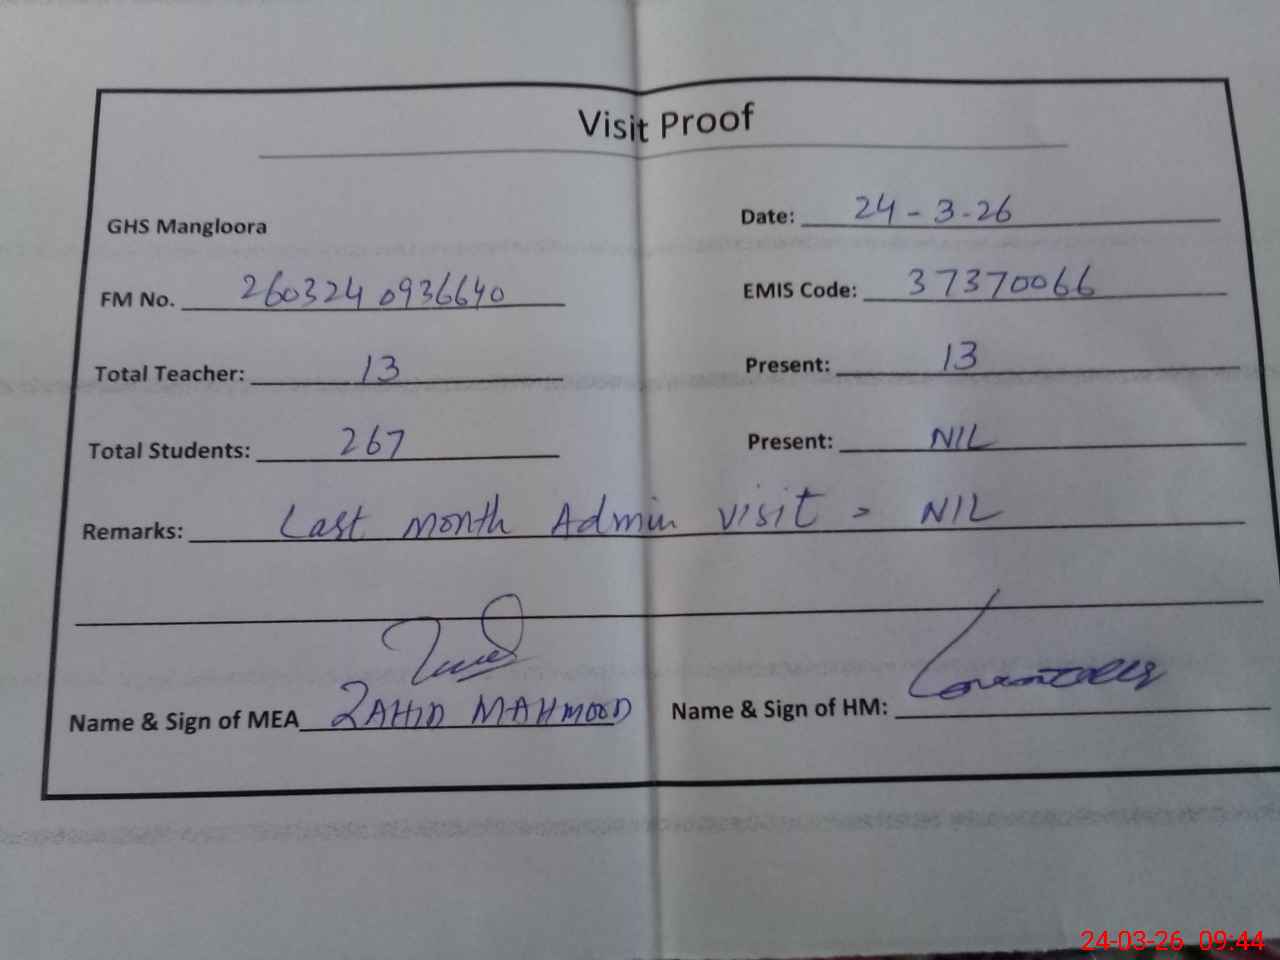 Visit Proof
GHS Mangloora Date: 24-3-26
FM No. 2603240936640 EMIS Code: 37370066
Total Teacher: 13 Present: 13
Total Students: 267 Present: NIL
Remarks: Last month Admin visit = NIL
Name & Sign of MEA ZAHID MAHMOOD Name & Sign of HM:
24-03-26 09:44